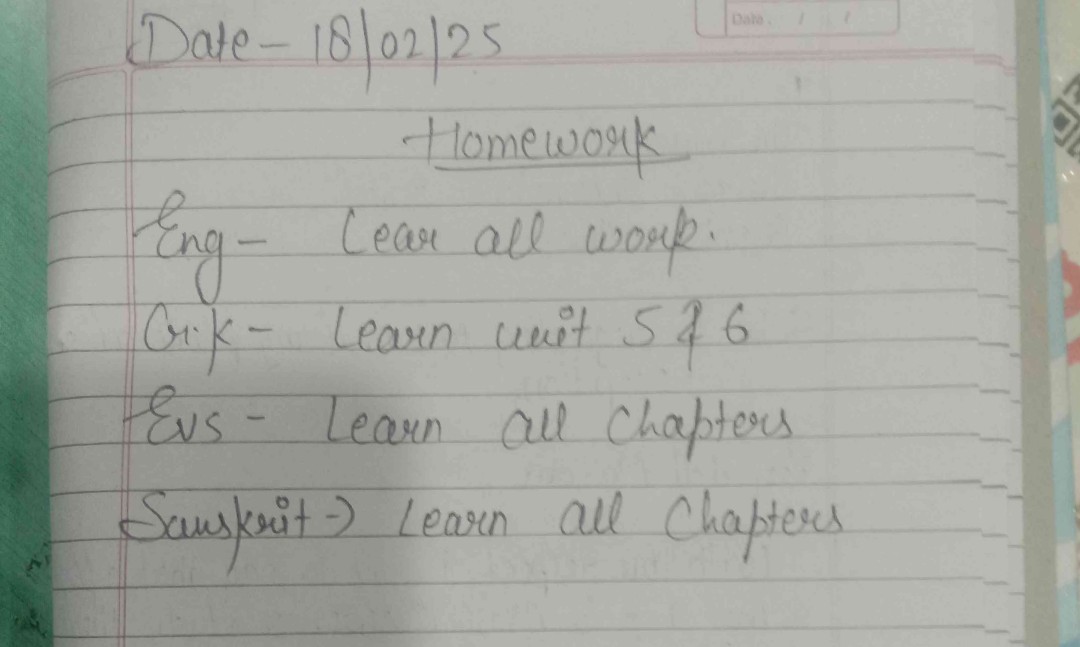 Date : / /
Date - 18/02/25
Homework
Eng - Lear all work.
G.K - Learn unit 5 & 6
Evs - Learn all Chapters
Sanskrit → Learn all Chapters